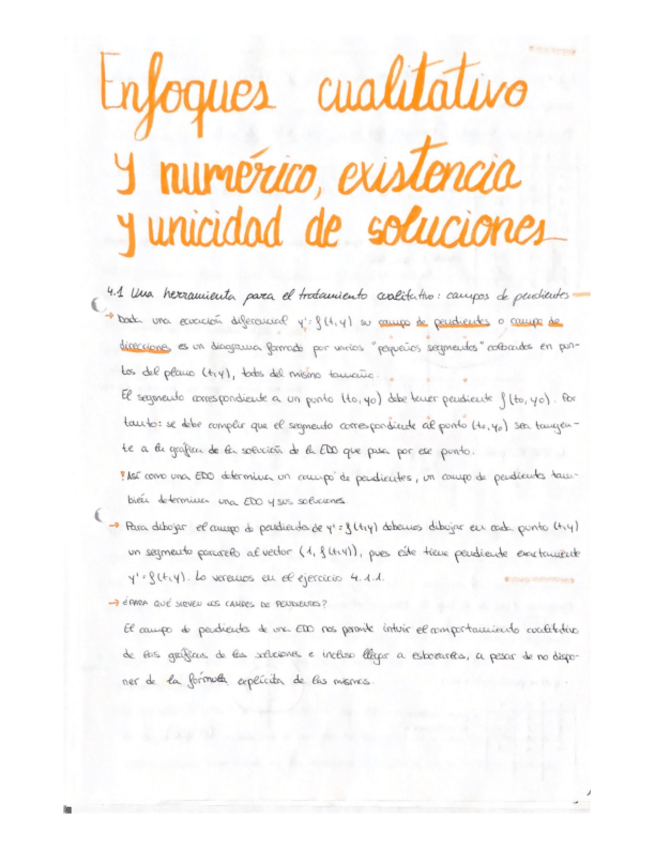 Enfoques cualitativo
y numérico, existencia
y unicidad de soluciones
4.1 Una herramienta para el tratamiento cualitativo: campos de pendientes
→ Dada una ecuación diferencial y'=f(t,y) su campo de pendientes o campo de
direcciones es un diagrama formado por varios "pequeños segmentos" colocados en pun-
tos del plano (t,y), todos del mismo tamaño.
El segmento correspondiente a un punto (t₀,y₀) debe tener pendiente f(t₀,y₀). Por
tanto: se debe cumplir que el segmento correspondiente al punto (t₀,y₀) sea tangen-
te a la gráfica de la solución de la EDO que pasa por ese punto.
! Así como una EDO determina un campo de pendientes, un campo de pendientes tam-
bién determina una EDO y sus soluciones.
→ Para dibujar el campo de pendientes de y'=f(t,y) debemos dibujar en cada punto (t,y)
un segmento paralelo al vector (1, f(t,y)), pues este tiene pendiente exactamente
y'=f(t,y). Lo veremos en el ejercicio 4.1.1.
→ ¿PARA QUÉ SIRVEN LOS CAMPOS DE PENDIENTES?
El campo de pendientes de una EDO nos permite intuir el comportamiento cualitativo
de las gráficas de las soluciones e incluso llegar a esbozarlas, a pesar de no dispo-
ner de la fórmula explícita de las mismas.